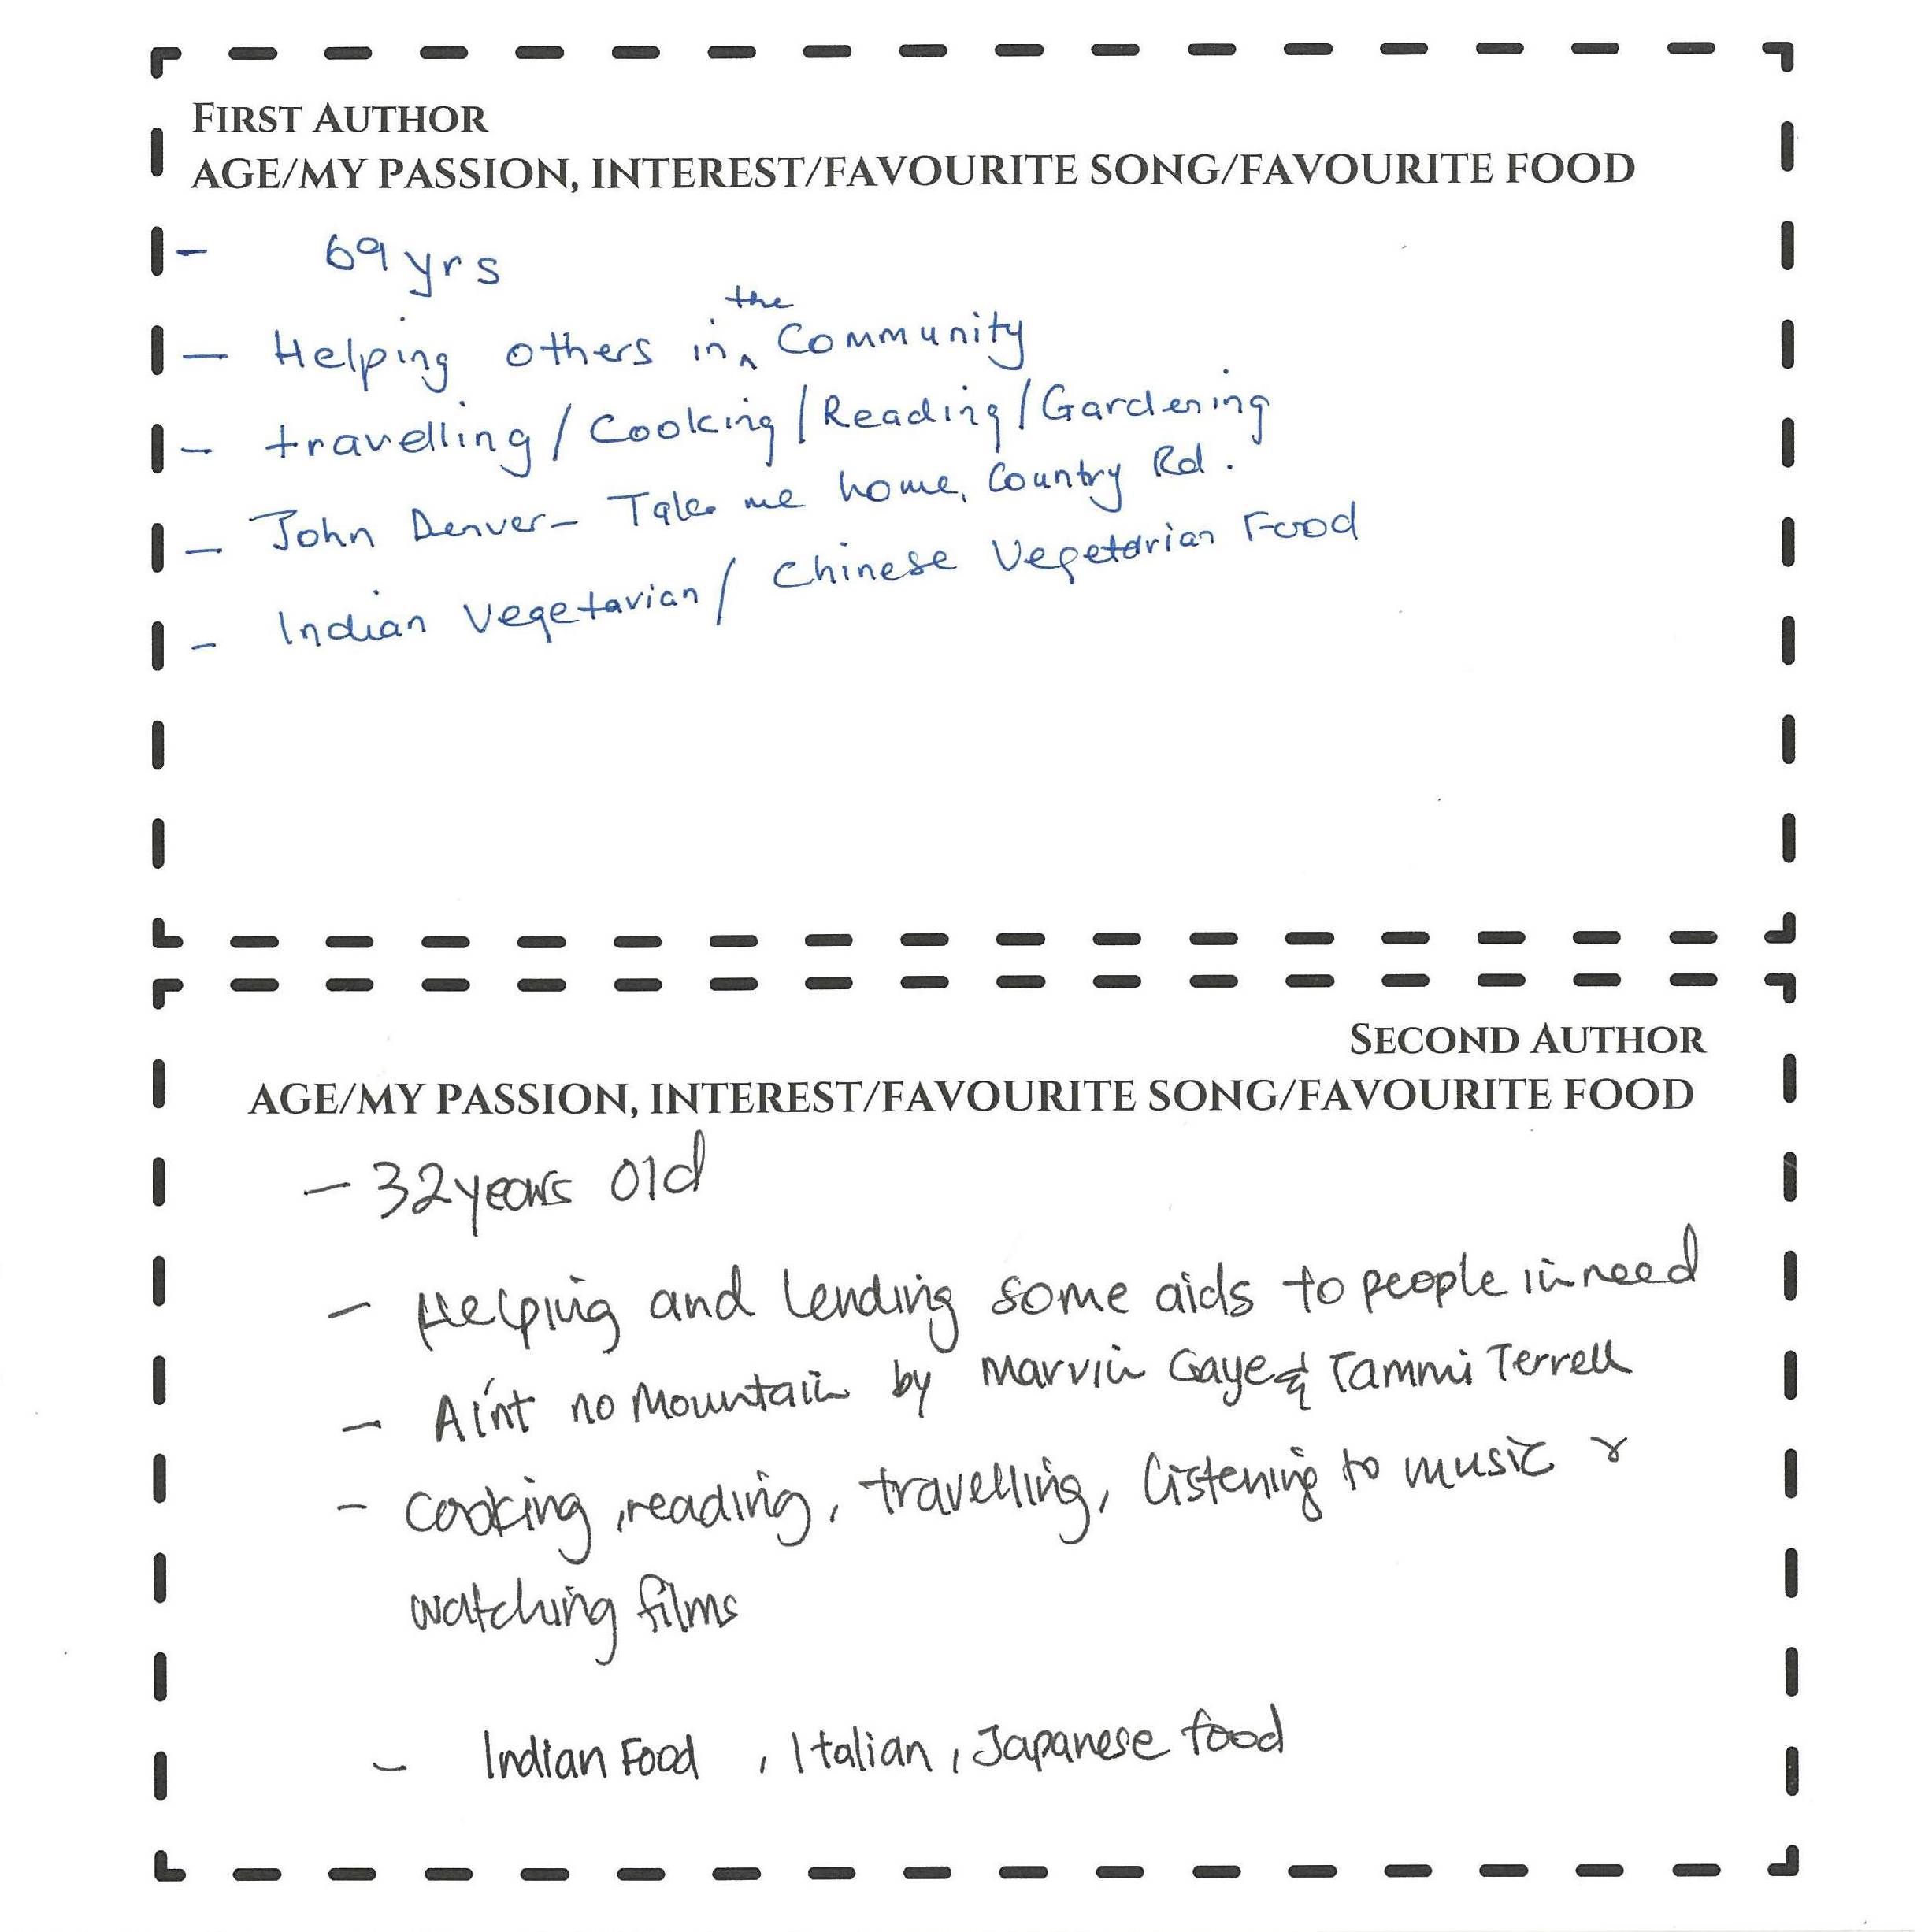 FIRST AUTHOR
AGE/MY PASSION, INTEREST/FAVOURITE SONG/FAVOURITE FOOD
- 69 yrs
- Helping others in the Community
- travelling / Cooking / Reading / Gardening
- John Denver - Take me home, Country Rd.
- Indian Vegetarian / Chinese Vegetarian Food
SECOND AUTHOR
AGE/MY PASSION, INTEREST/FAVOURITE SONG/FAVOURITE FOOD
- 32 years old
- Helping and lending some aids to people in need
- Ain't no Mountain by Marvin Gaye & Tammi Terrell
- Cooking, reading, travelling, listening to music &
watching films
- Indian Food, Italian, Japanese food